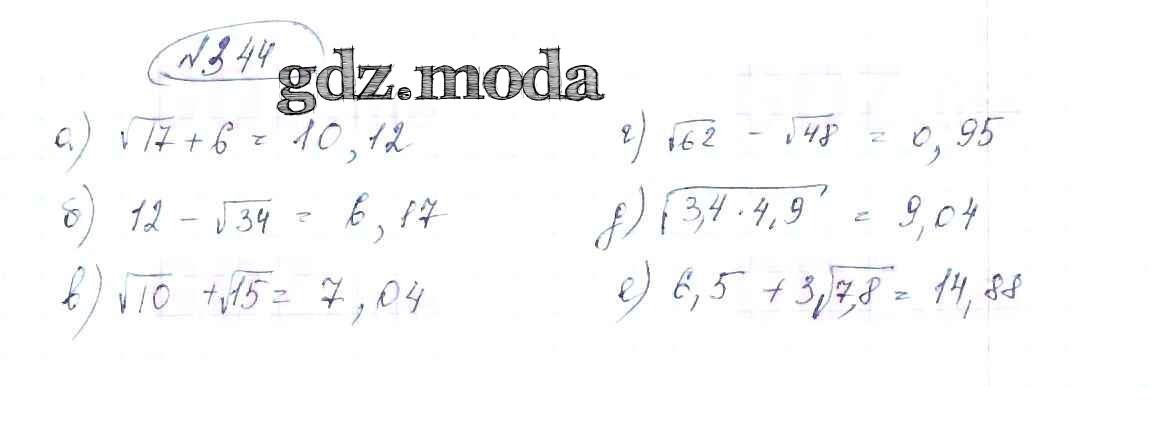 №344
gdz.moda
а) √17 + 6 = 10,12
б) 12 - √34 = 6,17
в) √10 + √15 = 7,04
г) √62 - √48 = 0,95
д) √3,4 · 4,9 = 9,04
е) 6,5 + 3√7,8 = 14,88